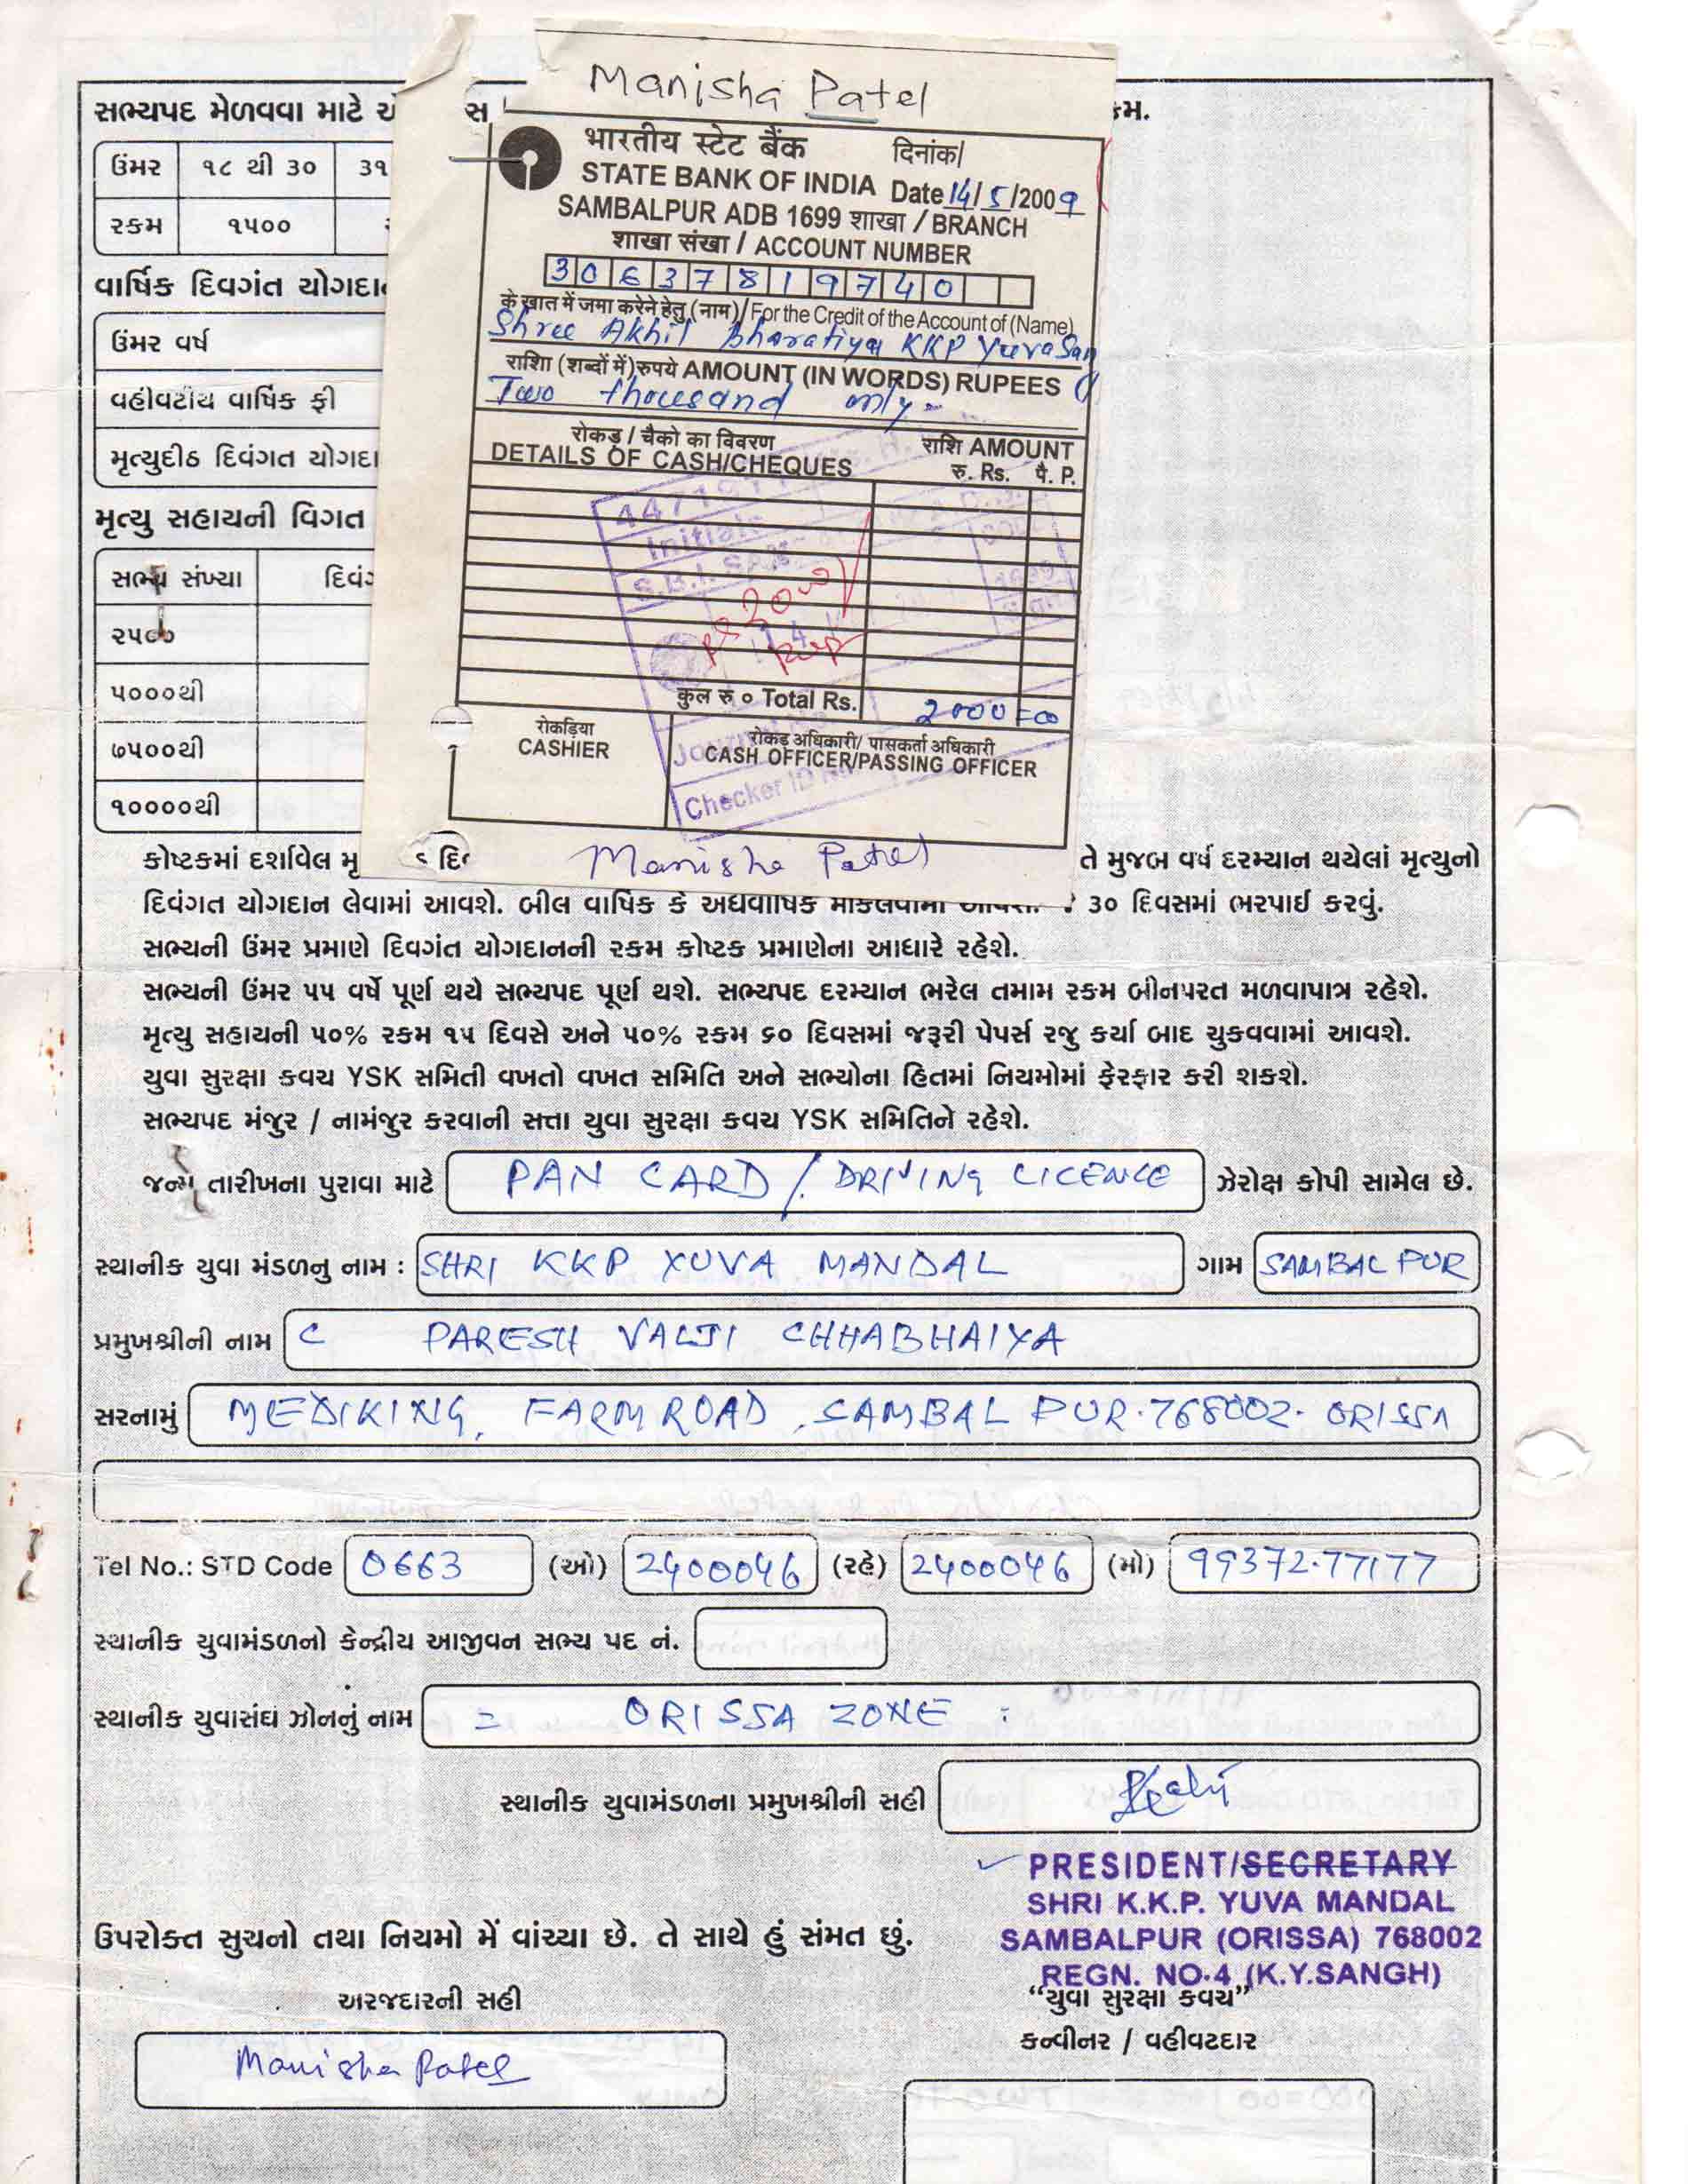 સભ્યપદ મેળવવા માટે
સ
કમ.
ઉંમર ૧૮ થી ૩૦ ૩૧
રકમ ૧૫૦૦
વાર્ષિક દિવગંત
ઉંમર વર્ષ
વહીવટીય વાર્ષિક ફી
મૃત્યુદીઠ દિવંગત
મૃત્યુ સહાયની વિગત
સભ્ય સંખ્યા
૫૦૦૦થી
૭૫૦૦થી
૧૦૦૦૦થી
Manisha Patel
भारतीय स्टेट बैंक दिनांक/
STATE BANK OF INDIA Date 14/5/2009
SAMBALPUR ADB 1699 शाखा / BRANCH
शाखा संखा / ACCOUNT NUMBER
30637819740
के खात में जमा करेने हेतु (नाम)/ For the Credit of the Account of (Name)
Shree Akhil Bharatiya KKP Yuva San
राशिा (शब्दों में) रुपये AMOUNT (IN WORDS) RUPEES
Two thousand only
रोकड़ / चैको का विवरण राशि AMOUNT
DETAILS OF CASH/CHEQUES रु. Rs. पै. P.
4471911
Initials
कुल रु ० Total Rs. 2000=00
रोकडिया
CASHIER
रोकड अधिकारी/ पासकर्ता अधिकारी
CASH OFFICER/PASSING OFFICER
Checker ID
Manisha Patel
કોષ્ટકમાં દર્શાવેલ તે મુજબ વર્ષ દરમ્યાન થયેલાં મૃત્યુનો
દિવંગત યોગદાન લેવામાં આવશે. બીલ વાર્ષિક કે અર્ધવાર્ષિક મોકલવામાં આવશે. ૩૦ દિવસમાં ભરપાઈ કરવું.
સભ્યની ઉંમર પ્રમાણે દિવગંત યોગદાનની રકમ કોષ્ટક પ્રમાણેના આધારે રહેશે.
સભ્યની ઉંમર ૫૫ વર્ષે પૂર્ણ થયે સભ્યપદ પૂર્ણ થશે. સભ્યપદ દરમ્યાન ભરેલ તમામ રકમ બીનપરત મળવાપાત્ર રહેશે.
મૃત્યુ સહાયની ૫૦% રકમ ૧૫ દિવસે અને ૫૦% રકમ ૬૦ દિવસમાં જરૂરી પેપર્સ રજુ કર્યા બાદ ચુકવવામાં આવશે.
યુવા સુરક્ષા કવચ YSK સમિતી વખતો વખત સમિતિ અને સભ્યોના હિતમાં નિયમોમાં ફેરફાર કરી શકશે.
સભ્યપદ મંજુર / નામંજુર કરવાની સત્તા યુવા સુરક્ષા કવચ YSK સમિતિને રહેશે.
જન્મ તારીખના પુરાવા માટે PAN CARD / DRIVING LICENCE ઝેરોક્ષ કોપી સામેલ છે.
સ્થાનીક યુવા મંડળનુ નામ : SHRI KKP YUVA MANDAL ગામ SAMBALPUR
પ્રમુખશ્રીની નામ C PARESH VALJI CHHABHAIYA
સરનામું MEDIKING, FARM ROAD, SAMBALPUR-768002- ORISSA
Tel No.: STD Code 0663 (ઓ) 2400046 (રહે) 2400046 (મો) 99372-77177
સ્થાનીક યુવામંડળનો કેન્દ્રીય આજીવન સભ્ય પદ નં.
સ્થાનીક યુવાસંઘ ઝોનનું નામ = ORISSA ZONE :
સ્થાનીક યુવામંડળના પ્રમુખશ્રીની સહી
PRESIDENT/SECRETARY
SHRI K.K.P. YUVA MANDAL
SAMBALPUR (ORISSA) 768002
REGN. NO-4 (K.Y.SANGH)
ઉપરોક્ત સુચનો તથા નિયમો મેં વાંચ્યા છે. તે સાથે હું સંમત છું.
“યુવા સુરક્ષા કવચ”
અરજદારની સહી
કન્વીનર / વહીવટદાર
Manisha Patel